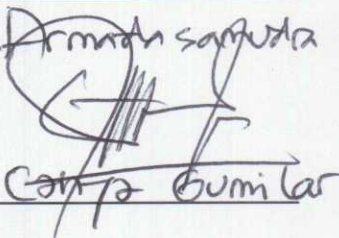 Armada samudra
Cahya Gumilar